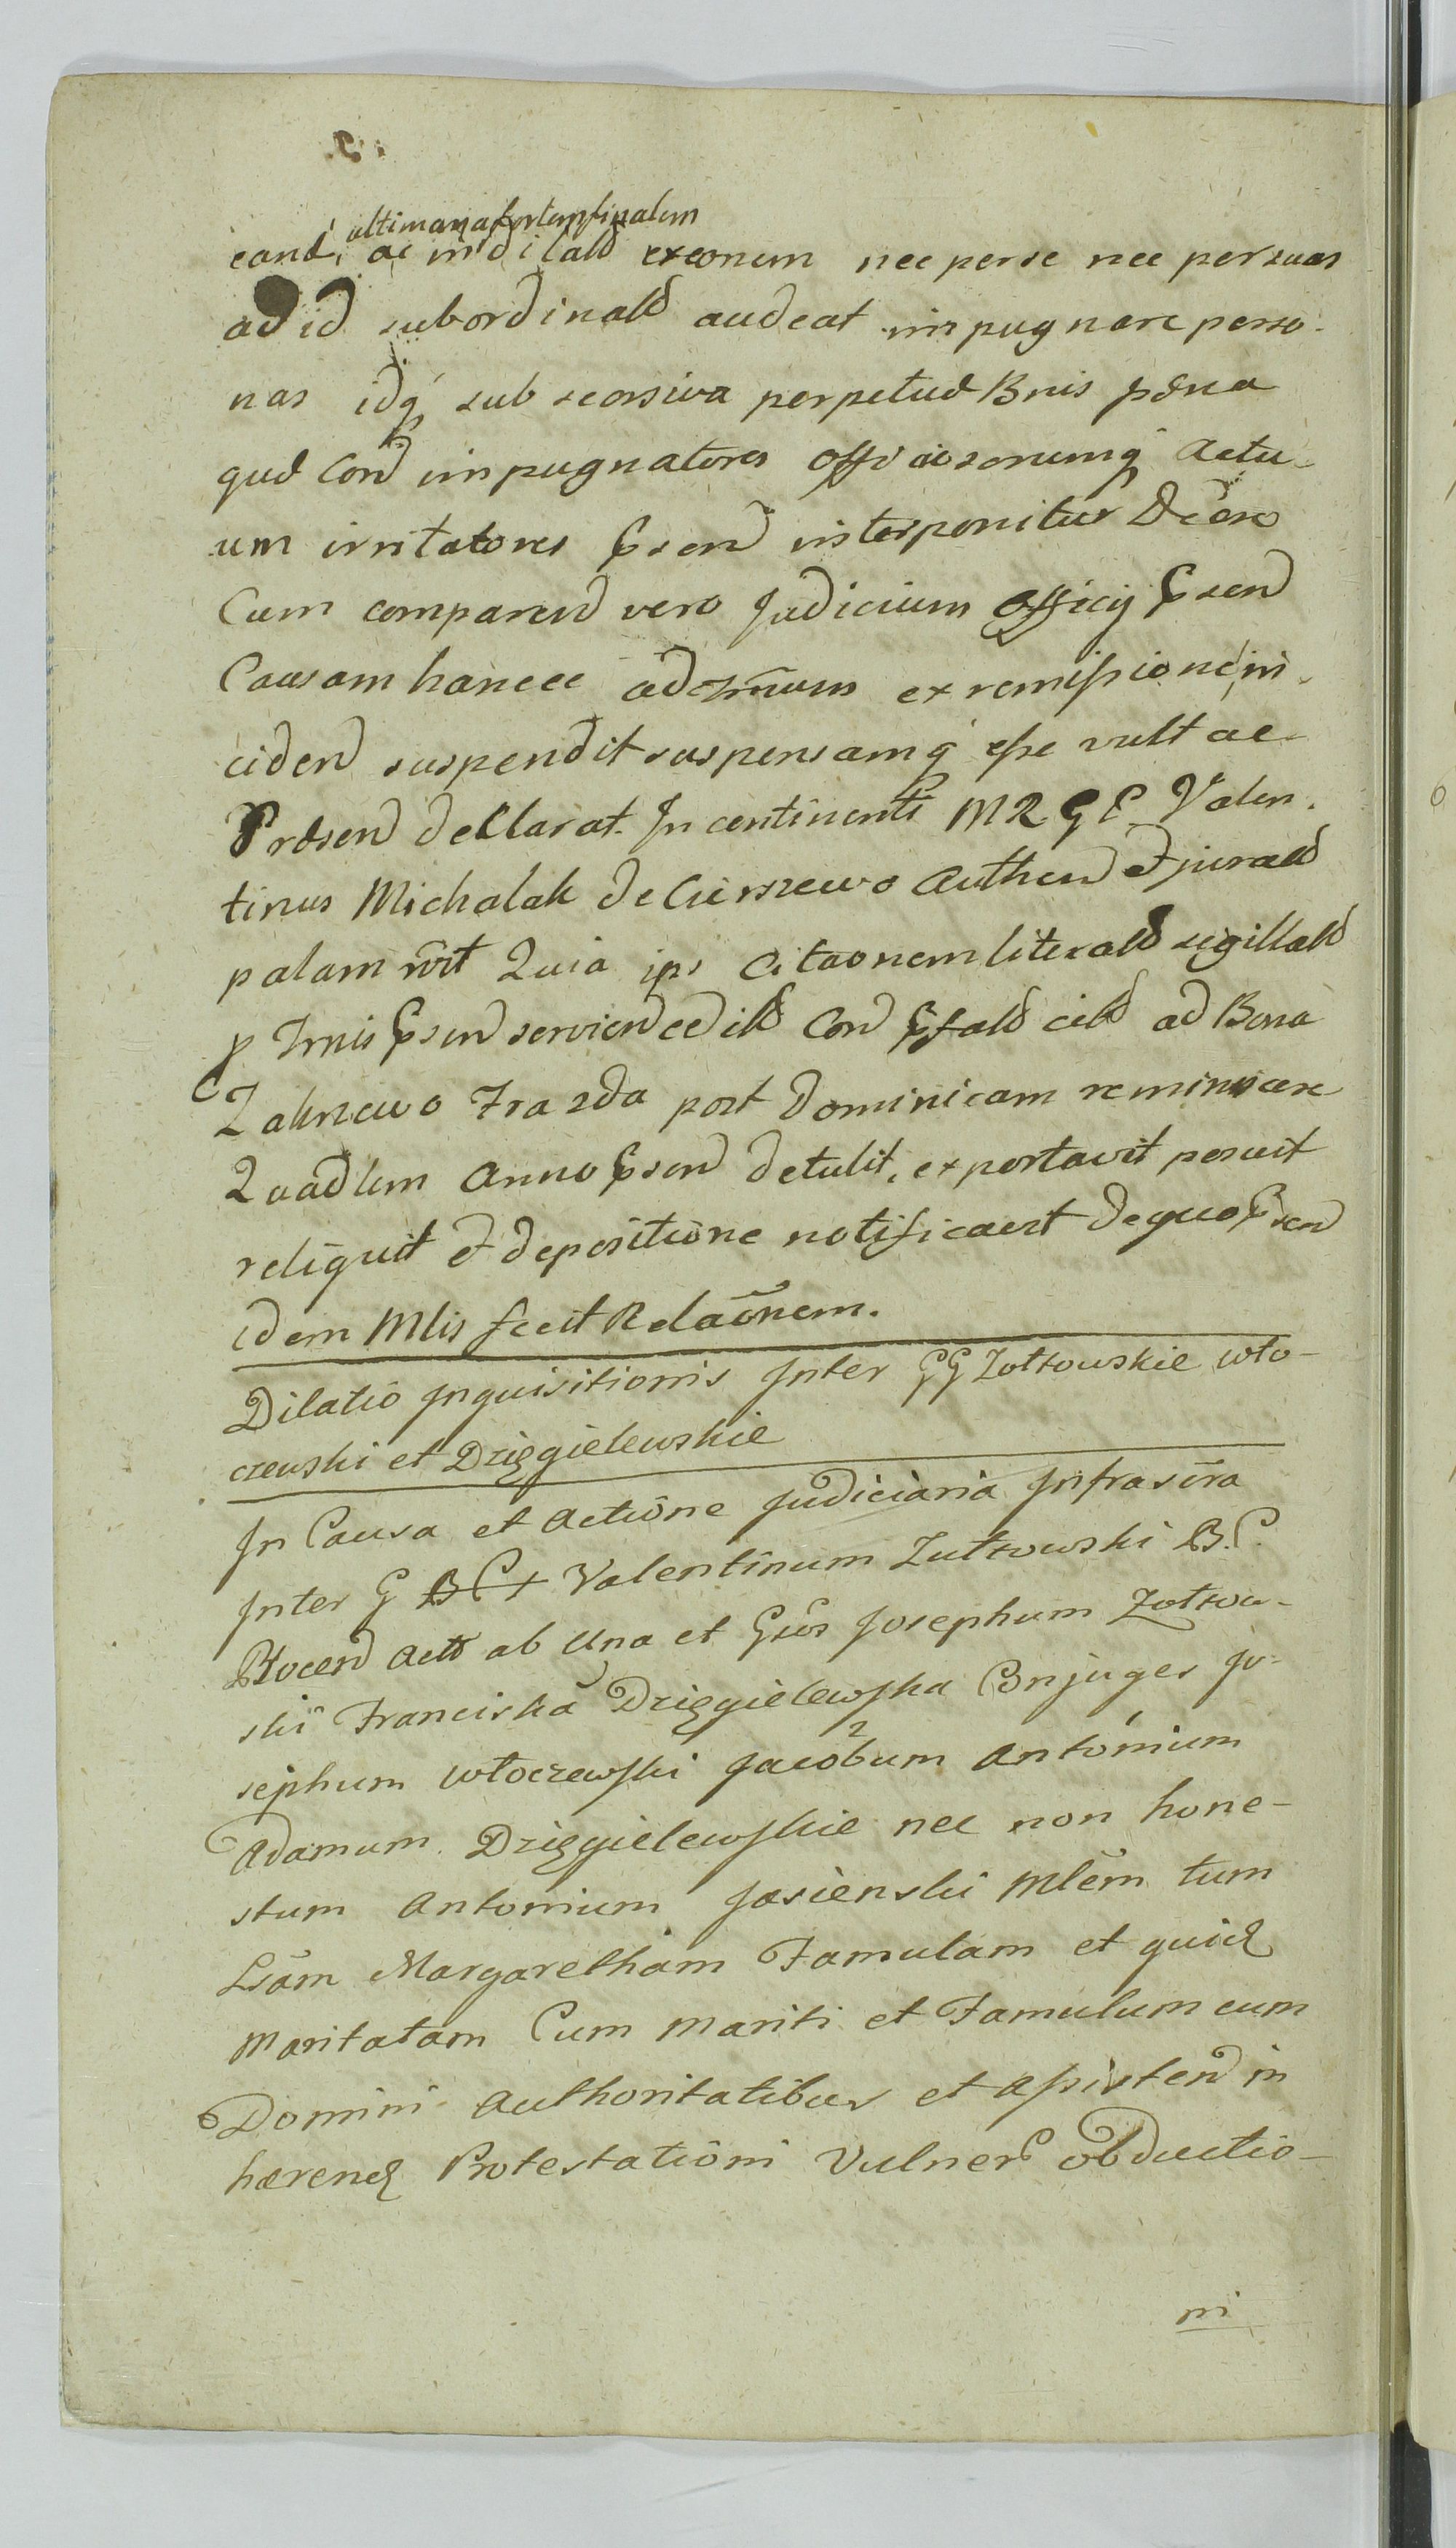 ultimariafortemfinalem
cand, ac indilatd execonem nec perse nec persuas
ad id subordinatd audeat impugnare perso-
nas idq sub seorsiva perpetuæ Bnis pæna
quæ Con impugnatores officiosorumq actu-
um irritatores Psend interponitur Decreo
Cum comparend vero Judicium Officij Psend
Causam hancce ad Trnum ex remissione in-
ciden suspendit suspensamq esse vult ac
Præsend dellarat. In continenti MRGE Valen-
tinus Michalak de Cierszewo Authen et juratd
palam rvit Quia ips Citaonem literatd sigillatd
p Trnis Psend servien Con ad Bona
Zakrzewo Fra 2da post Dominicam reminiscere
Quadlem Anno Psend detulit, exportavit posuit
reliquit et depositione notificavit de quo Psend
idem Mlis fecit Relaonem.
Dilatio Inquisitionis Inter GG Zółtowskie Wło-
czewski et Dzięgielewskie
In Causa et Actione Judiciaria Infrascra
Inter G BCt Valentinum Zułtowski B.C.
Rtocen Actt ab Una et Gsos Josephum Zołtow-
ski Franciska Dzięgielewska Conjuges Jo-
sephum Włoczewski Jacobum 2 Antonium 1
Adamum Dzięgielewskie nec non hone-
stum Antonium Jasienski Mlem tum
Lsam Margaretham Famulam et quid
Maritatam Cum Mariti et Famulum cum
Domini Authoritatibus et Assisten in
hæren Protestationi Vulner obductio-
ni